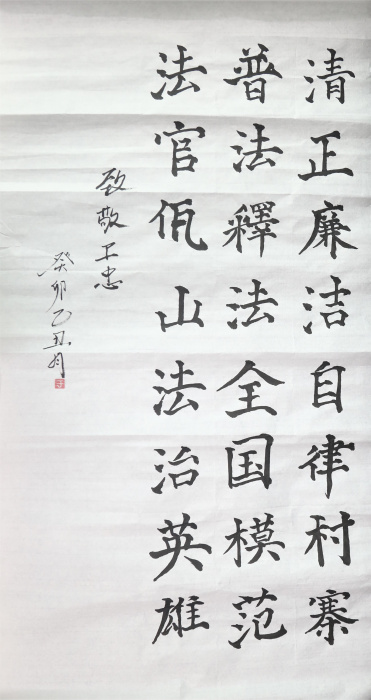 清正廉洁自律村寨
普法釋法全国模范
法官佤山法治英雄
致敬王忠
癸卯乙丑月